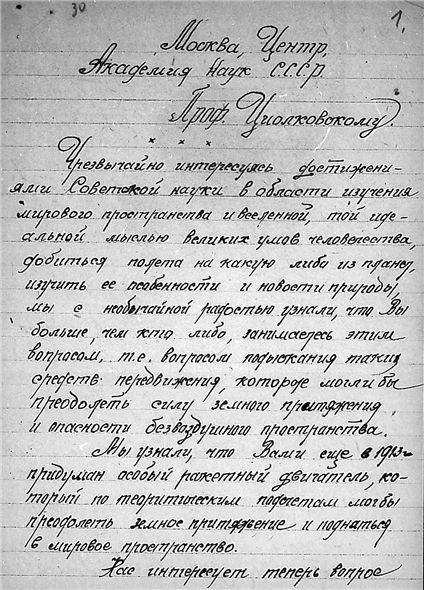 30
1.
Москва, Центр,
Академия Наук С.С.С.Р.
Проф. Циолковскому.
× × ×
Чрезвычайно интересуясь достижени-
ями Советской науки в области изучения
мирового пространства и вселенной, той иде-
альной мыслью великих умов человечества,
добиться полета на какую либо из планет,
изучить ее особенности и новости природы,
мы с необычайной радостью узнали, что Вы
больше, чем кто либо, занимаетесь этим
вопросом, т.е. вопросом подыскания таких
средств передвижения, которое могли бы
преодолеть силу земного притяжения
и опасности безвоздушного пространства.
Мы узнали, что Вами еще в 1913г
придуман особый ракетный двигатель, ко-
торый по теоритическим подсчетам мог бы
преодолеть земное притяжение и подняться
в мировое пространство.
Нас интересует теперь вопрос